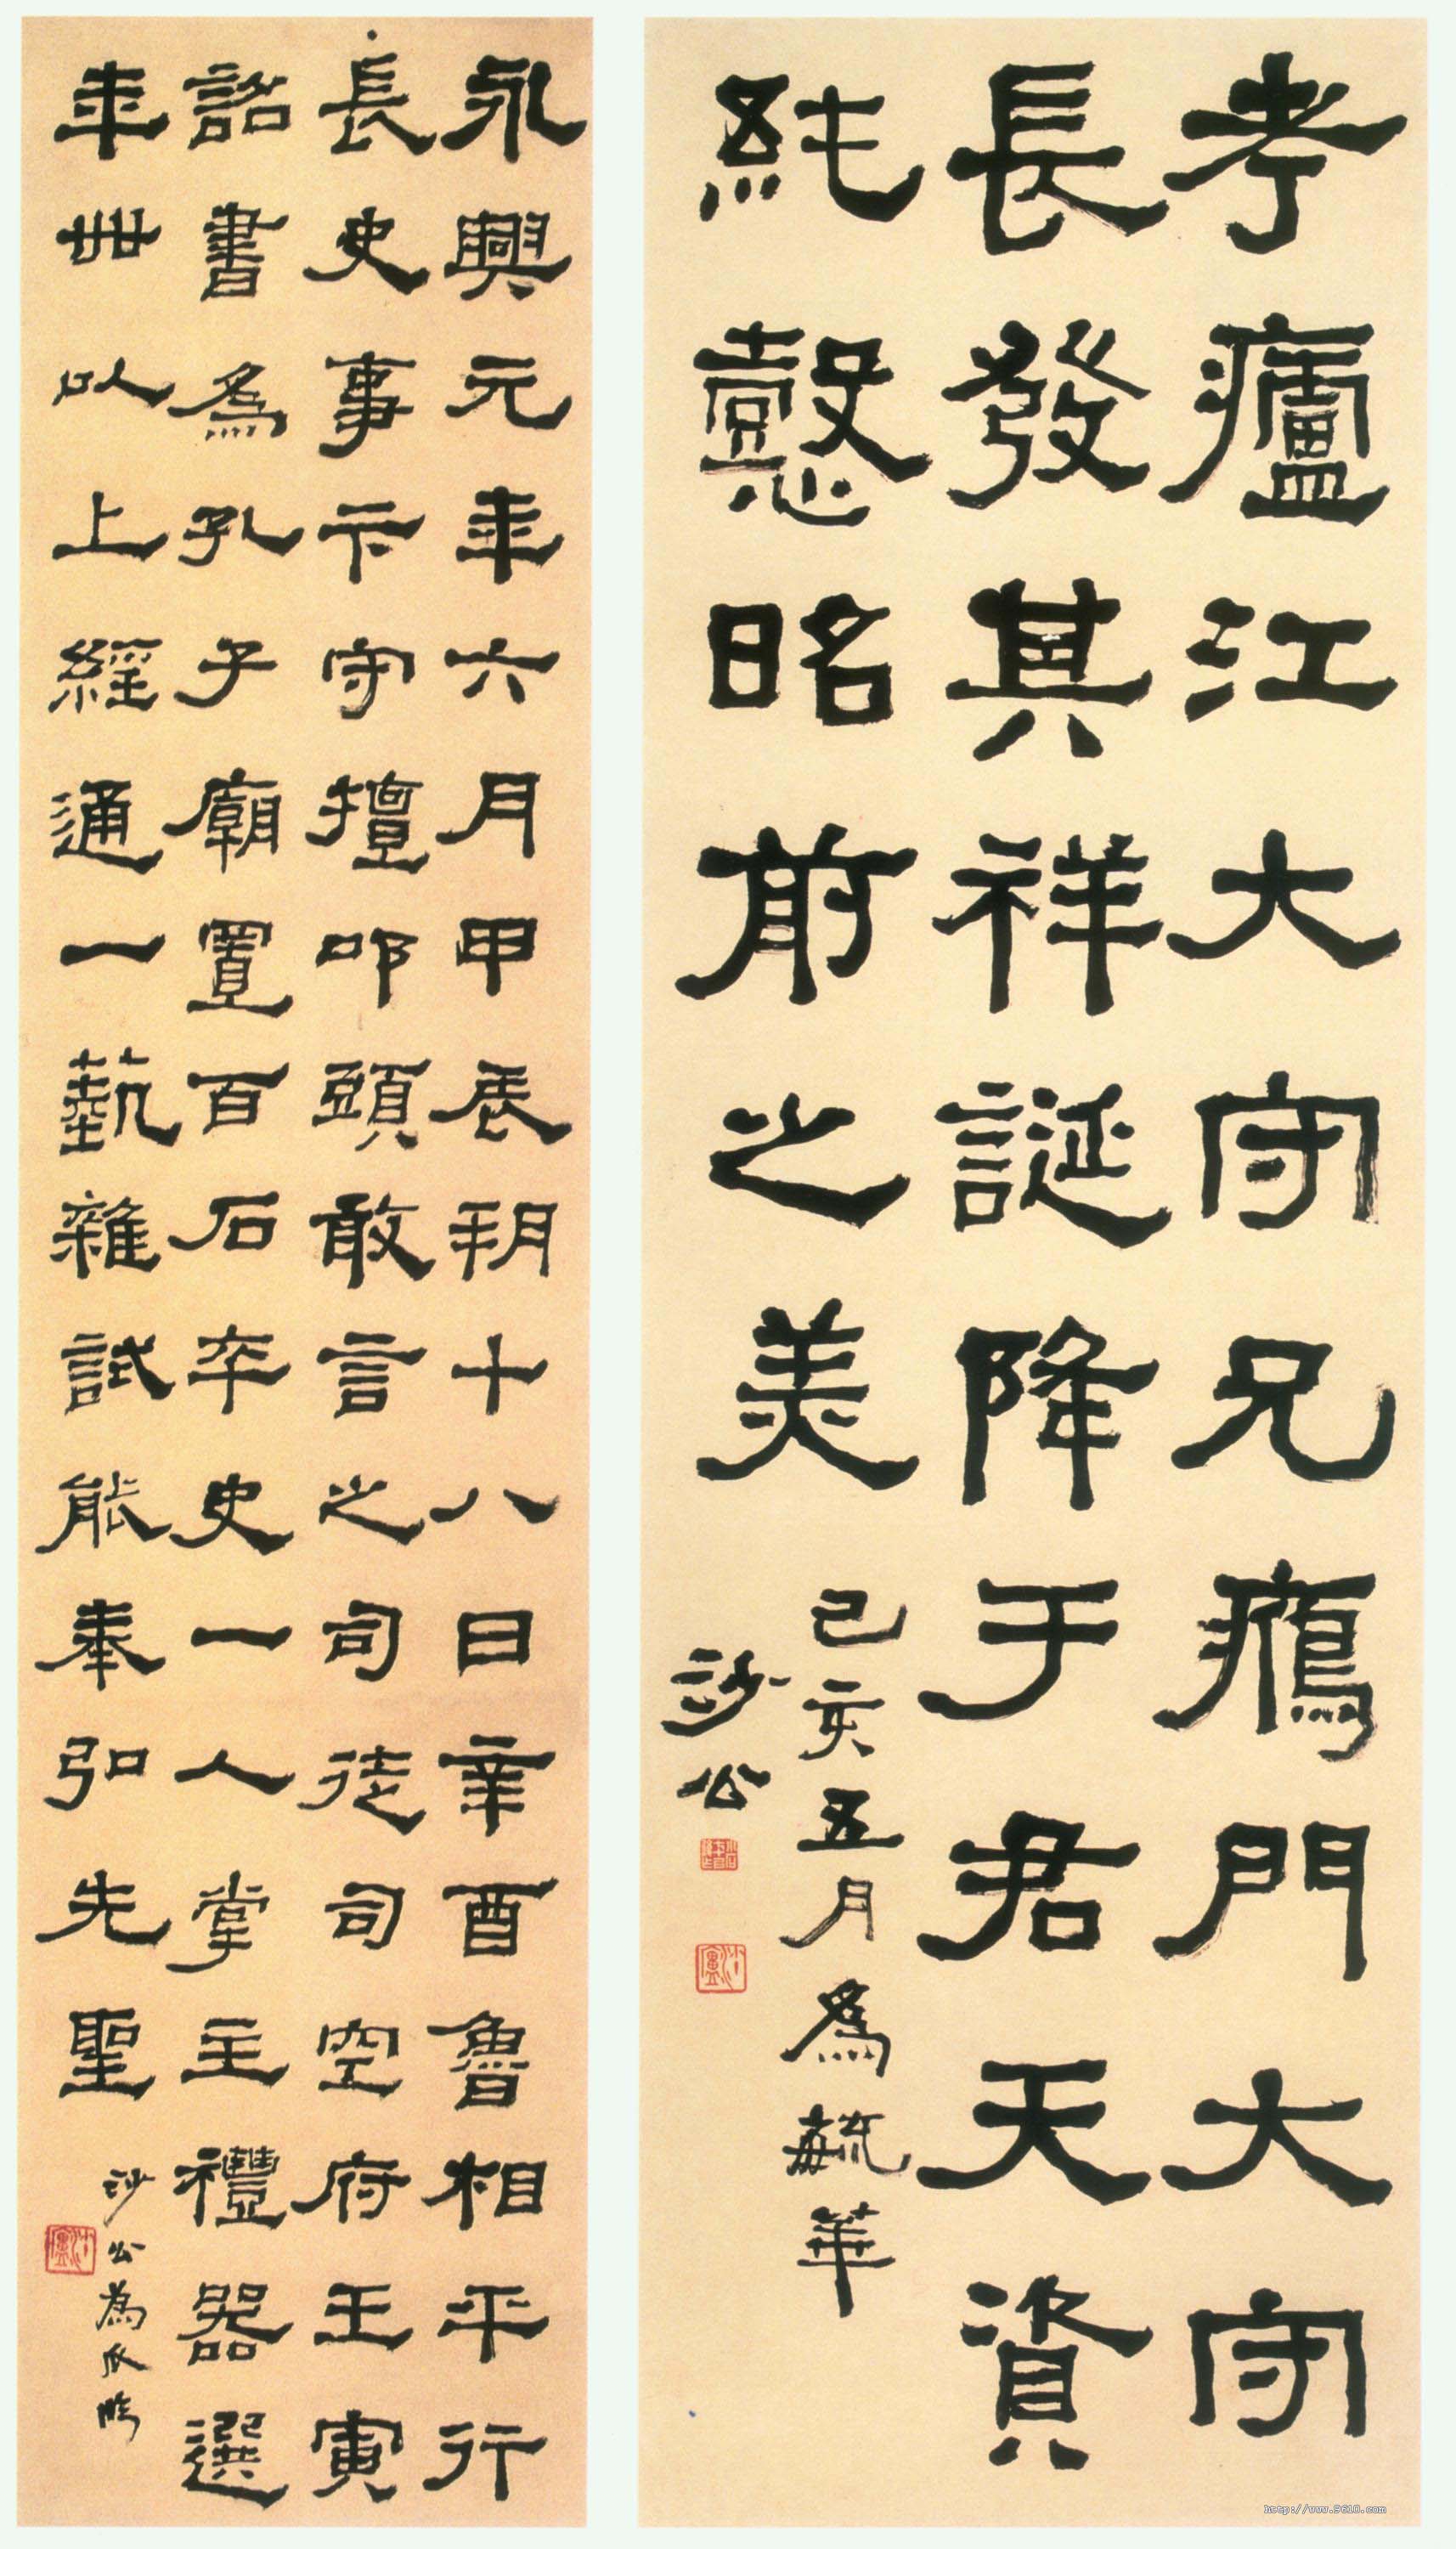 考廬江大守兄鴈門大守
長發其祥誕降于君天資
純懿昭前之美
己亥五月為毓華
沙公
永興元年六月甲辰朔十八日辛酉魯相平行
長史事卞守擅叩頭敢言之司徒司空府壬寅
詔書為孔子廟置百石卒史一人掌主禮器選
年卌以上經通一藝雜試能奉弘先聖
沙公為臨
http://www.9610.com